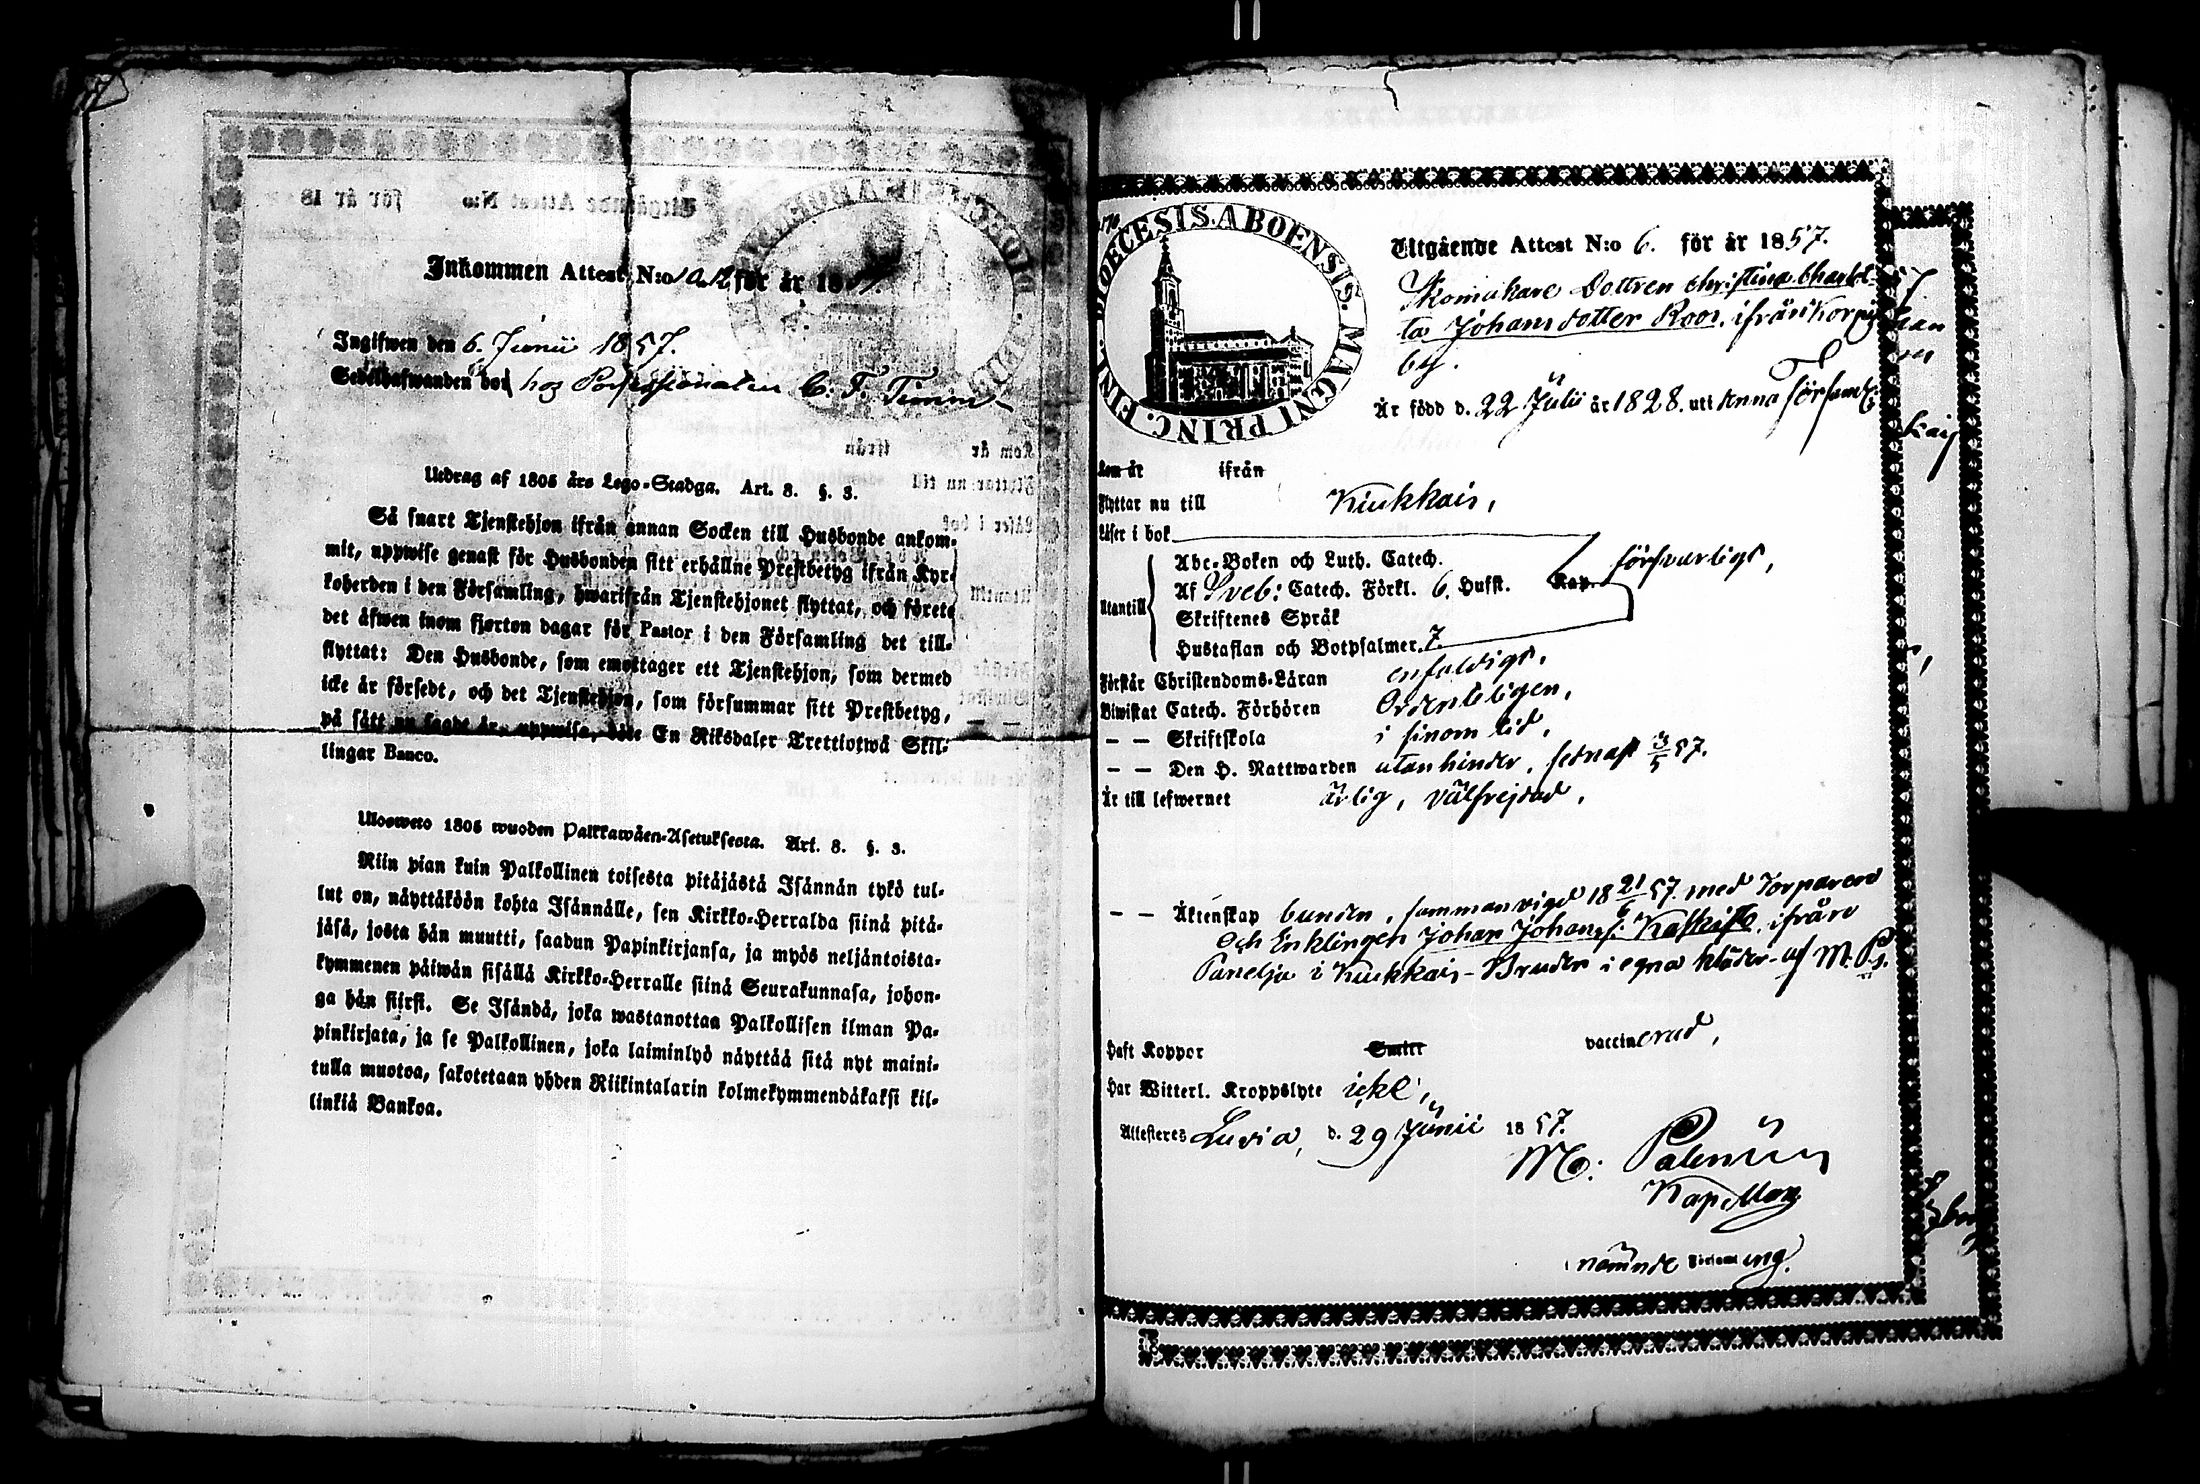 Inkommen Attest N:o för år 18
Ingifwen den 6. Junii 1857.
Sedelhafwanden bor hos C. F. Timm
Utdrag af 1805 års Lego-Stadga. Art. 8. §. 3.
Så snart Tjenstehjon ifrån annan Socken till Husbonde ankom-
mit, uppwise genast för Husbonden sitt erhållne Prestbetyg ifrån Kyr-
koherden i den Församling, hwarifrån Tjenstehjonet flyttat, och förete
det äfwen inom fjorton dagar för Pastor i den Församling det till-
flyttat: Den Husbonde, som emottager ett Tjenstehjon, som dermed
icke är försedt, och det Tjenstehjon, som försummar sitt Prestbetyg,
på sätt nu sagdt är, uppwisa, böte En Riksdaler Trettiotwå Skil-
lingar Banco.
Ulosweto 1805 wuoden Palkkawäen-Asetuksesta. Art. 8. §. 3.
Niin pian kuin Palkollinen toisesta pitäjästä Isännän tykö tul-
lut on, näyttäköön kohta Isännälle, sen Kirkko-Herralda siinä pitä-
jäsä, josta hän muutti, saadun Papinkirjansa, ja myös neljäntoista-
kymmenen päiwän sisällä Kirkko-Herralle siinä Seurakunnasa, johon-
ga hän siirsi. Se Isändä, joka wastanottaa Palkollisen ilman Pa-
pinkirjata, ja se Palkollinen, joka laiminlyö näyttää sitä nyt maini-
tulla muotoa, sakotetaan yhden Riikintalarin kolmekymmendäkaksi kil-
linkiä Bankoa.
DIOECESIS. ABOENSIS. MAGNI PRINC. FINL.
Utgående Attest N:o 6. för år 1857.
Skomakare Dottren Christina Charlot-
ta Johansdotter Roos, ifrån Korpi
by.
Är född d. 22 Julii år 1828. uti Anna Församl:
Kom år ifrån
Flyttar nu till Kiukkais,
Läser i bok
försvarligt,
Abc-Boken och Luth. Catech.
Utantill Af Sveb: Catech. Förkl. 6. Hufst. Kap.
Skriftenes Språk
Hustaflan och Botpsalmer. 7.
Förstår Christendoms-Läran enfaldigt.
Biwistat Catech. Förhören Ordenteligen,
— — Skriftskola i sinom tid,
— — Den H. Nattwarden utan hinder, sednast 3/5 57.
Är till lefwernet ärlig, välfrejdad,
— — Äktenskap bunden, sammanvigd 18 21/6 57. med Torparen
och Enklingen Johan Johans: Kaskisto, ifrån
Panelja i Kiukkais - Bruden i egna kläder af M. P.
Haft Koppor Smitt vaccinerad,
Har Witterl. Kroppslyte icke,
Attesteres Luvia, d. 29 Junii 1857.
M: Palenius
Kapellan
i nämnde Församling.